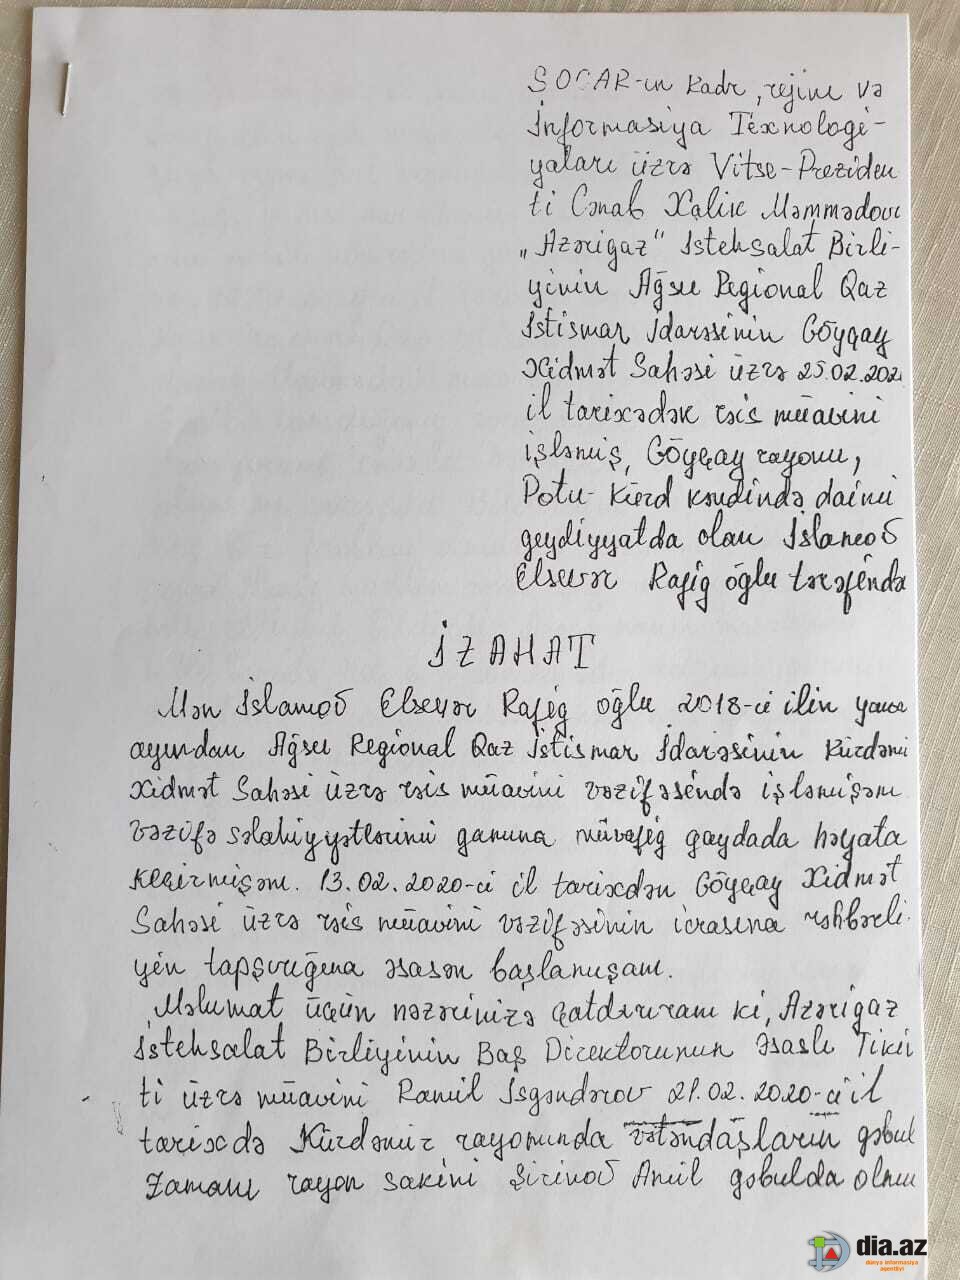 SOCAR-ın Kadr, rejim və
İnformasiya Texnologi-
yaları üzrə Vitse-Preziden
ti Cənab Xalik Məmmədov
„Azəriqaz" İstehsalat Birli-
yinin Ağsu Regional Qaz
İstismar İdarəsinin Göyçay
Xidmət Sahəsi üzrə 25.02.202
il tarixədək rəis müavini
işləmiş, Göyçay rayonu,
Potu-Kürd kəndində daimi
geydiyyatda olan İslamov
Elsevər Rafig oğlu tərəfində
İZAHAT
Mən İslamov Elsevər Rafig oğlu 2018-ci ilin
ayından Ağsu Regional Qaz İstismar İdarəsinin Kürdəmi
Xidmət Sahəsi üzrə rəis müavini vəzifəsində işləmişəm
vəzifə səlahiyyətlərimi ganuna müvafig gaydada həyata
keçirmişəm. 13.02.2020-ci il tarixdən Göyçay Xidmət
Sahəsi üzrə rəis müavini vəzifəsinin icrasına rəhbərli-
yin tapşırığına əsasən başlamışam.
Məlumat üçün nəzərinizə çatdırıram ki, Azəriqaz
İstehsalat Birliyinin Baş Direktorunun Əsaslı Tiki
ti üzrə müavini Ramil İsgəndərov 21.02.2020-ci il
tarixdə Kürdəmir rayonunda vətəndaşların gəbul
zamanı rayon sakini Şirinov Amil gəbulda olmu
dia.az
dünya informasiya
agentliyi